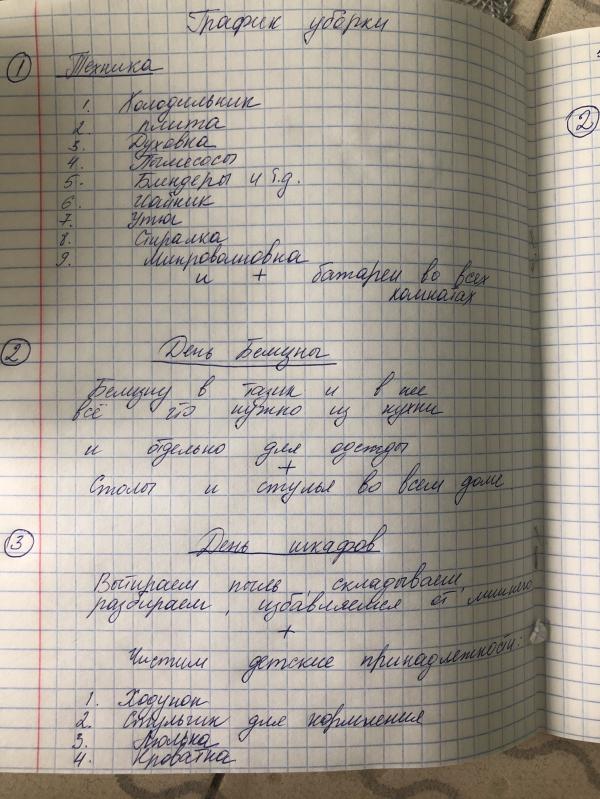 График уборки
1 Техника
1. Холодильник
2. плита
3. Духовка
4. Пылесосы
5. Блендеры и т.д.
6. Чайник
7. Утюг
8. Стиралка
9. Микроволновка
и + батареи во всех
комнатах
2 День Белизны
Белизну в тазик и в нее
всё что нужно из кухни
и отдельно для одежды
+
Столы и стулья во всем доме
3 День шкафов
Вытираем пыль, складываем,
разбираем, избавляемся от лишнего
+
Чистим детские принадлежности:
1. Ходунок
2. Стульчик для кормления
3. Люлька
4. Кроватка
2